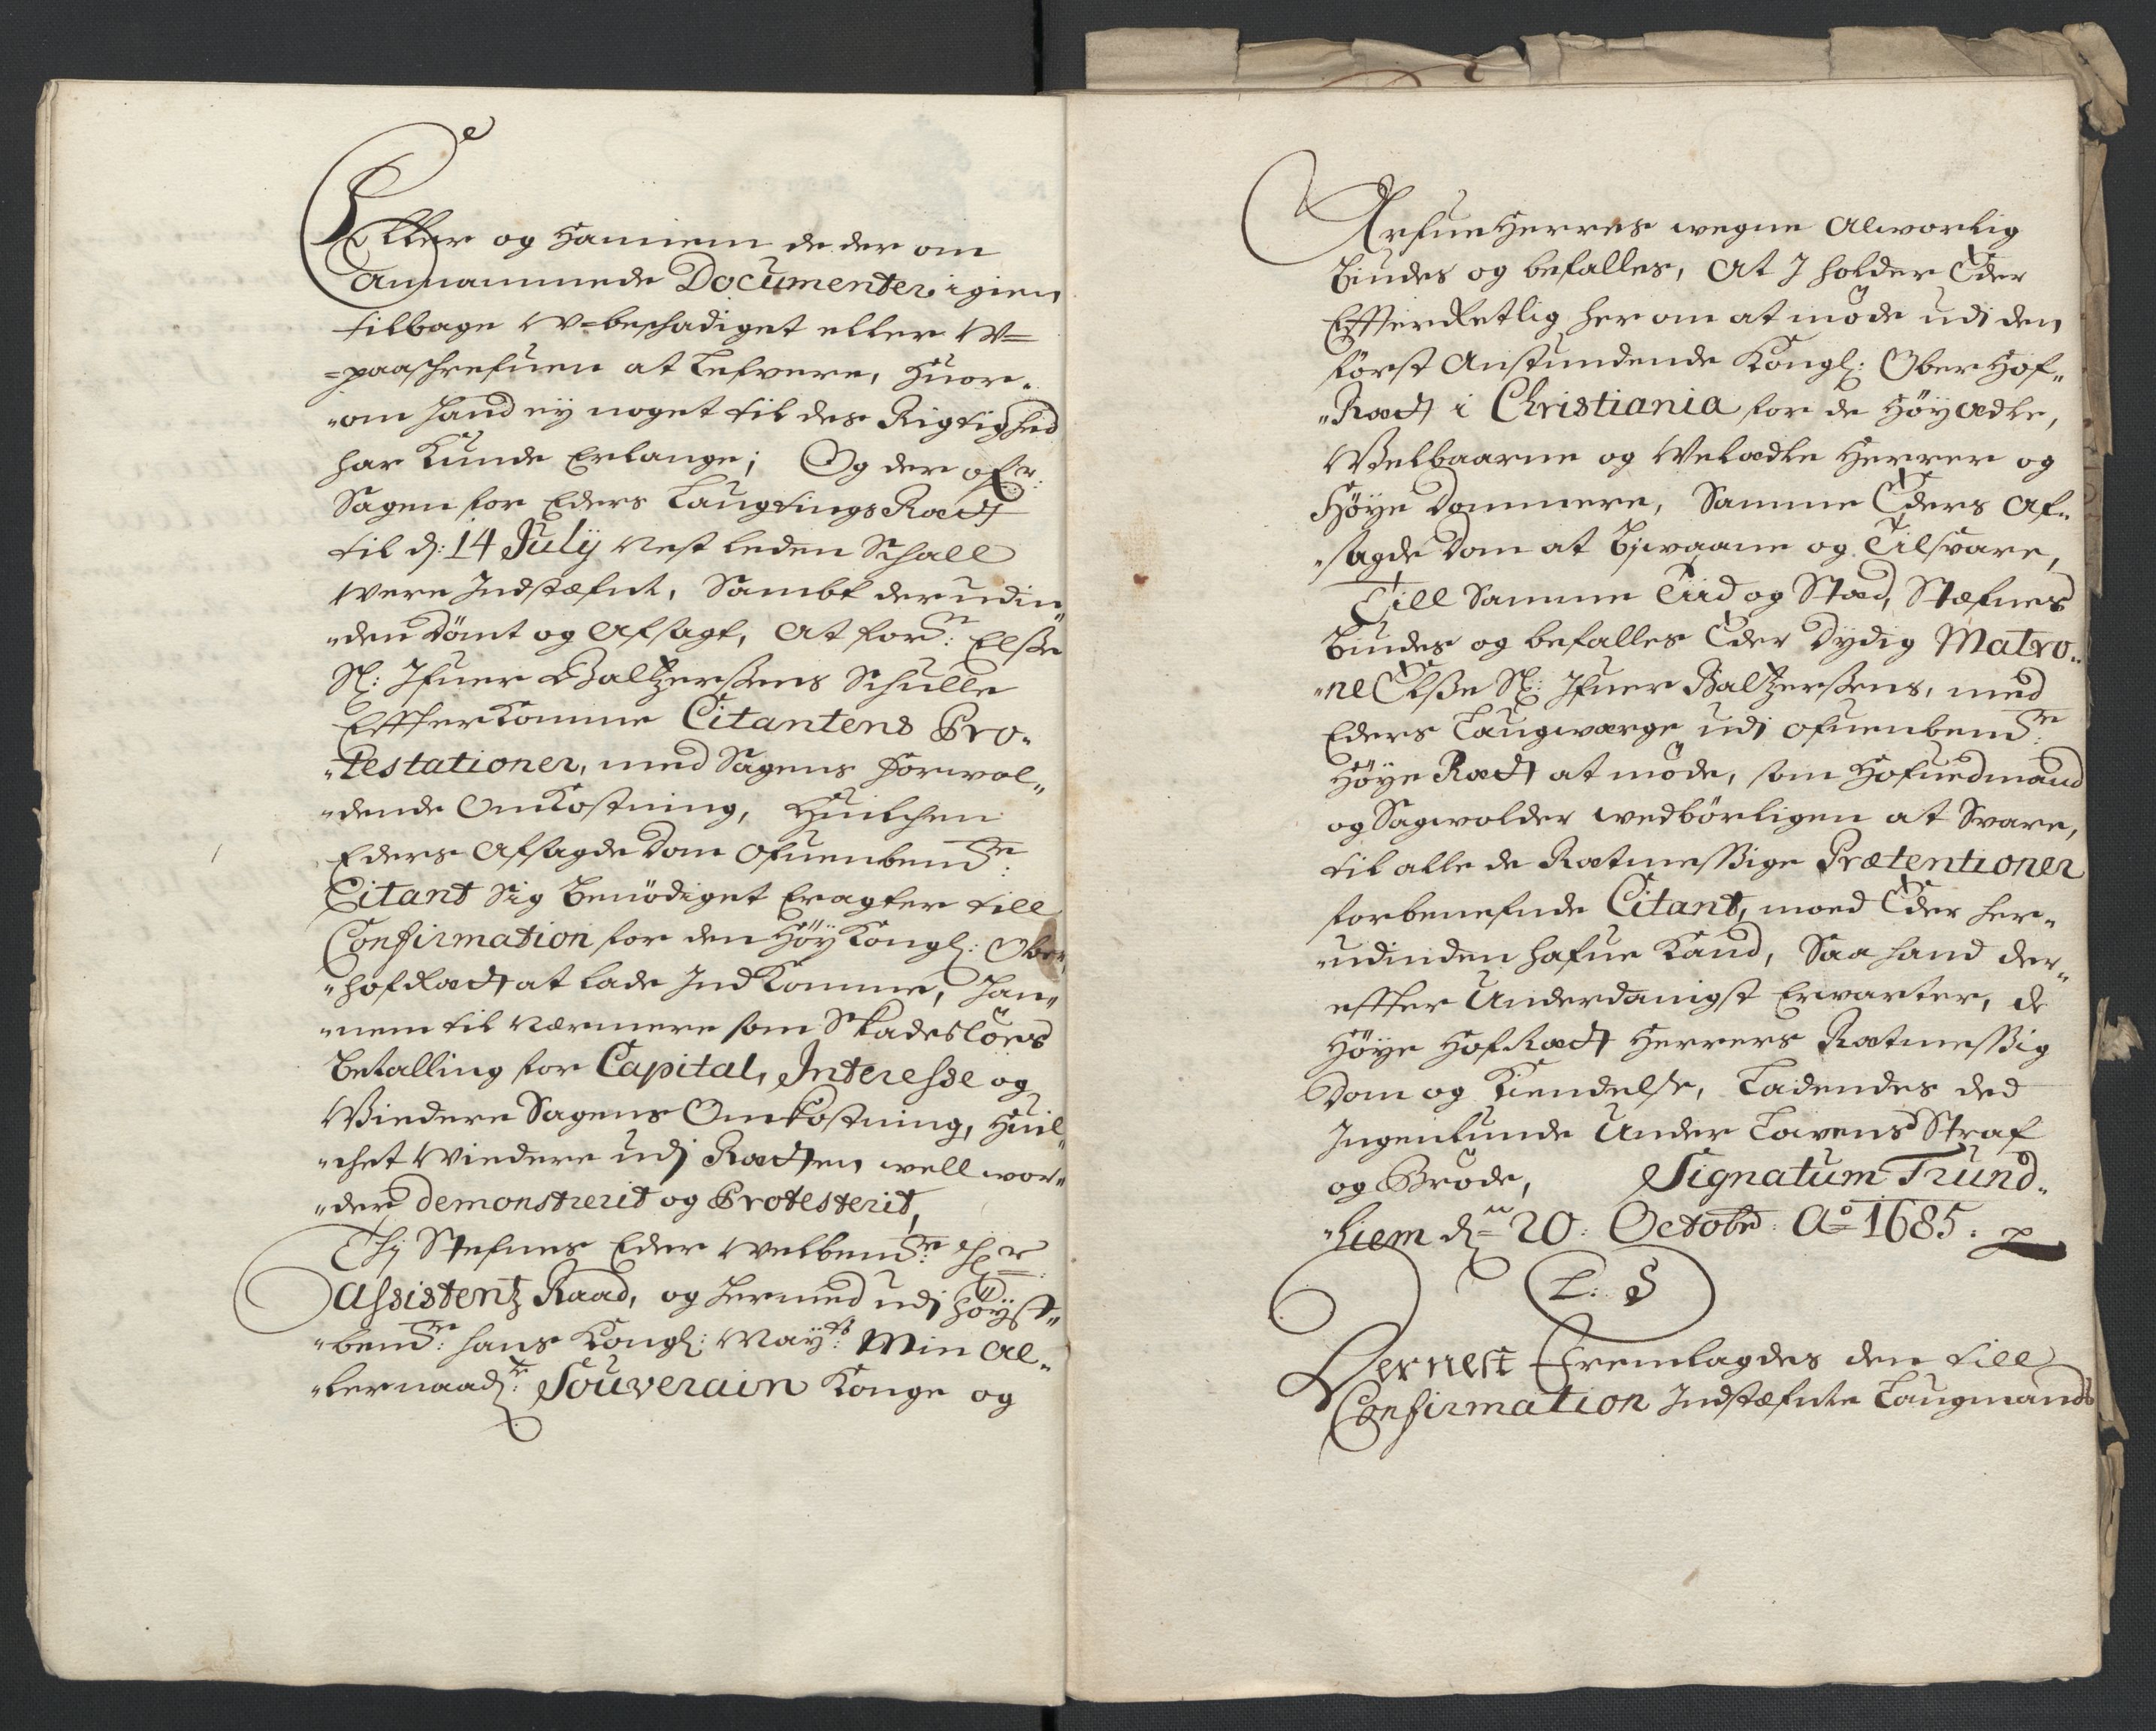 Eller og Hannem de der om
Annammede Documenter igien
tilbage W=beschadiget eller W=
=paaschrefuen at Lefvere, Huor„
„om hand ey noget til des Rigtighed
har Kunde Erlange; Og der ofr:
Sagen for Eders Laugtings Ræt
til d: 14 July Nest leden Schall
Were Indstæfnt, Sambt der udin„
„den Dömt og Afsagt, At forne: Elsse
Sl: Ifuer Baltzerssens Schulle
Effterkomme Citantens Pro„
„testationer, med Sagens Forwol„
„dende Omkostning, Huilchen
Eders Afsagde Dom Ofuenbemte:
Citant Sig Benödiget Eragter till
Confirmation for den Höy Kongl: Ober„
„hof Ræt at lade Ind Komme, Han„
„nem til Nærmere som Skadeslöes
Betalling for Capital, Interesse og
Wiedere Sagens Omkostning, Huil„
„chet Wiedere udj Rætten well wor„
„der demonstrerit og Protesterit,
Thj Stefnes Eder Welbemte: Hr
Assistentz Raad, og hermed udj Höyst„
„bemte: Hans Kongl: Maytz: Min Al„
„lernaadte: Souverain Konge og
Arfue Herres wegne Alworlig
Biudes og befalles, At I holder Eder
Effterretlig her om at möde udi den
först Anstundende Kongl: Ober Hof„
„Ræt i Christiania for de Höyædle,
Welbaarne og Welædle Herrer og
Höye Dommere, Samme Eders Af„
„sagde Dom at Bjwaane og Tilsvare,
Till Samme Tiid og Stæd, Stæfnes
Biudes og befalles Eder Dydig Matro„
„ne Elsse Sl: Ifuer Baltzerssens, med
Eders Laugwærge udj ofuenbemte:
Höye Ræt at möde, som Hofuedmand
og Sagwolder wedbörligen at Svare,
til alle de Rætmessige Prætentioner
forbenefnde Citant, moed Eder her„
„udinden hafue Kand, Saa hand der„
effter Underdanigst Erwarter, de
Höye Hof Ræt Herrers Rætmessig
Dom og Kiendelse, Ladendes ded
Ingenlunde Under Lovens Straf
og Bröde, Signatum Trund„
„hiem dn 20: Octobr: Ao 1685. p
L: S
Dernest Fremlagdes den till
Confirmation Indstæfnte Laugmands